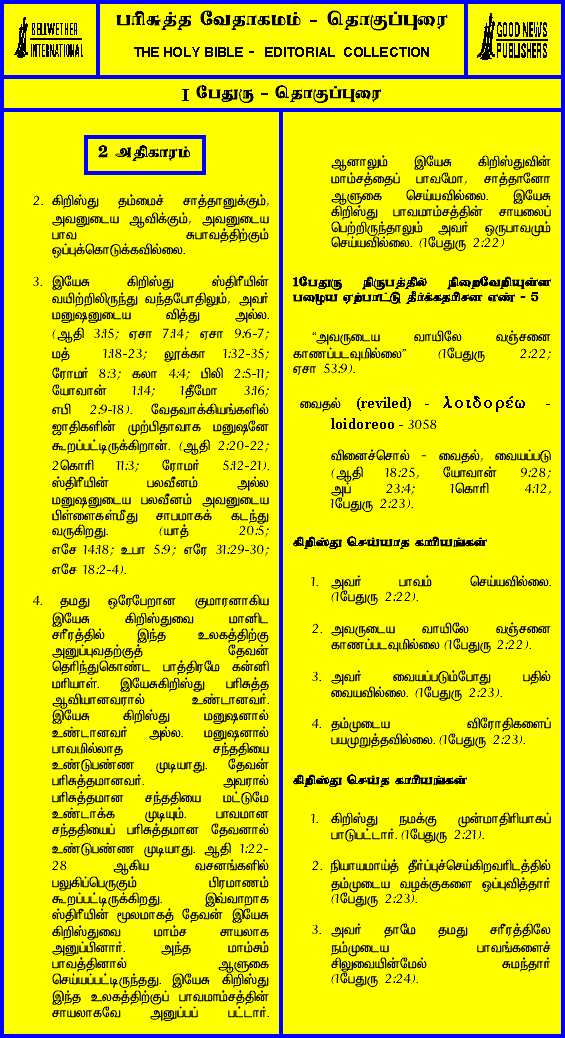 BELLWETHER
INTERNATIONAL
பரிசுத்த வேதாகமம் - தொகுப்புரை
THE HOLY BIBLE - EDITORIAL COLLECTION
GOOD NEWS
PUBLISHERS
I பேதுரு - தொகுப்புரை
2 அதிகாரம்
2. கிறிஸ்து தம்மைச் சாத்தானுக்கும்,
அவனுடைய ஆவிக்கும், அவனுடைய
பாவ சுபாவத்திற்கும்
ஒப்புக்கொடுக்கவில்லை.
3. இயேசு கிறிஸ்து ஸ்திரீயின்
வயிற்றிலிருந்து வந்தபோதிலும், அவர்
மனுஷனுடைய வித்து அல்ல.
(ஆதி 3:15; ஏசா 7:14; ஏசா 9:6-7;
மத் 1:18-23; லூக்கா 1:32-35;
ரோமர் 8:3; கலா 4:4; பிலி 2:5-11;
யோவான் 1:14; 1தீமோ 3:16;
எபி 2:9-18). வேதவாக்கியங்களில்
ஜாதிகளின் முற்பிதாவாக மனுஷனே
கூறப்பட்டிருக்கிறான். (ஆதி 2:20-22;
2கொரி 11:3; ரோமர் 5:12-21).
ஸ்திரீயின் பலவீனம் அல்ல
மனுஷனுடைய பலவீனம் அவனுடைய
பிள்ளைகள்மீது சாபமாகக் கடந்து
வருகிறது. (யாத் 20:5;
எசே 14:18; உபா 5:9; எரே 31:29-30;
எசே 18:2-4).
4. தமது ஒரேபேறான குமாரனாகிய
இயேசு கிறிஸ்துவை மானிட
சரீரத்தில் இந்த உலகத்திற்கு
அனுப்புவதற்குத் தேவன்
தெரிந்துகொண்ட பாத்திரமே கன்னி
மரியாள். இயேசுகிறிஸ்து பரிசுத்த
ஆவியானவரால் உண்டானவர்.
இயேசு கிறிஸ்து மனுஷனால்
உண்டானவர் அல்ல. மனுஷனால்
பாவமில்லாத சந்ததியை
உண்டுபண்ண முடியாது. தேவன்
பரிசுத்தமானவர். அவரால்
பரிசுத்தமான சந்ததியை மட்டுமே
உண்டாக்க முடியும். பாவமான
சந்ததியைப் பரிசுத்தமான தேவனால்
உண்டுபண்ண முடியாது. ஆதி 1:22-
28 ஆகிய வசனங்களில்
பலுகிப்பெருகும் பிரமாணம்
கூறப்பட்டிருக்கிறது. இவ்வாறாக
ஸ்திரீயின் மூலமாகத் தேவன் இயேசு
கிறிஸ்துவை மாம்ச சாயலாக
அனுப்பினார். அந்த மாம்சம்
பாவத்தினால் ஆளுகை
செய்யப்பட்டிருந்தது. இயேசு கிறிஸ்து
இந்த உலகத்திற்குப் பாவமாம்சத்தின்
சாயலாகவே அனுப்பப் பட்டார்.
ஆனாலும் இயேசு கிறிஸ்துவின்
மாம்சத்தைப் பாவமோ, சாத்தானோ
ஆளுகை செய்யவில்லை. இயேசு
கிறிஸ்து பாவமாம்சத்தின் சாயலைப்
பெற்றிருந்தாலும் அவர் ஒருபாவமும்
செய்யவில்லை. (1பேதுரு 2:22)
1பேதுரு நிருபத்தில் நிறைவேறியுள்ள
பழைய ஏற்பாட்டு தீர்க்கதரிசன எண் - 5
"அவருடைய வாயிலே வஞ்சனை
காணப்படவுமில்லை" (1பேதுரு 2:22;
ஏசா 53:9).
வைதல் (reviled) - λοιδορέω -
loidoreoo - 3058
வினைச்சொல் - வைதல், வையப்படு
(ஆதி 18:25, யோவான் 9:28;
அப 23:4; 1கொரி 4:12,
1பேதுரு 2:23).
கிறிஸ்து செய்யாத காரியங்கள்
1. அவர் பாவம் செய்யவில்லை.
(1பேதுரு 2:22).
2. அவருடைய வாயிலே வஞ்சனை
காணப்படவுமில்லை (1பேதுரு 2:22).
3. அவர் வையப்படும்போது பதில்
வையவில்லை. (1பேதுரு 2:23).
4. தம்முடைய விரோதிகளைப்
பயமுறுத்தவில்லை. (1பேதுரு 2:23).
கிறிஸ்து செய்த காரியங்கள்
1. கிறிஸ்து நமக்கு முன்மாதிரியாகப்
பாடுபட்டார். (1பேதுரு 2:21).
2. நியாயமாய்த் தீர்ப்புச்செய்கிறவரிடத்தில்
தம்முடைய வழக்குகளை ஒப்புவித்தார்
(1பேதுரு 2:23).
3. அவர் தாமே தமது சரீரத்திலே
நம்முடைய பாவங்களைச்
சிலுவையின்மேல் சுமந்தார்
(1பேதுரு 2:24).